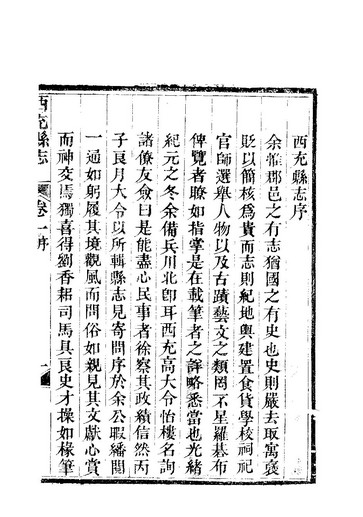 西充縣志序
余惟郡邑之有志猶國之有史也史則嚴去取寓褒
貶以簡核爲貴而志則紀地輿建置食貨學校祠祀
官師選舉人物以及古蹟藝文之類罔不星羅碁布
俾覽者瞭如指掌是在載筆者之詳略悉當也光緒
紀元之冬余備兵川北卽耳西充高大令怡樓名詢
諸僚友僉曰是能盡心民事者徐察其政績信然丙
子良月大令以所輯縣志見寄問序於余公暇繙閱
一通如躬履其境觀風而問俗如親見其文獻心賞
而神交焉獨喜得劉香耜司馬具良史才操如椽筆
西充縣志
卷一序
一